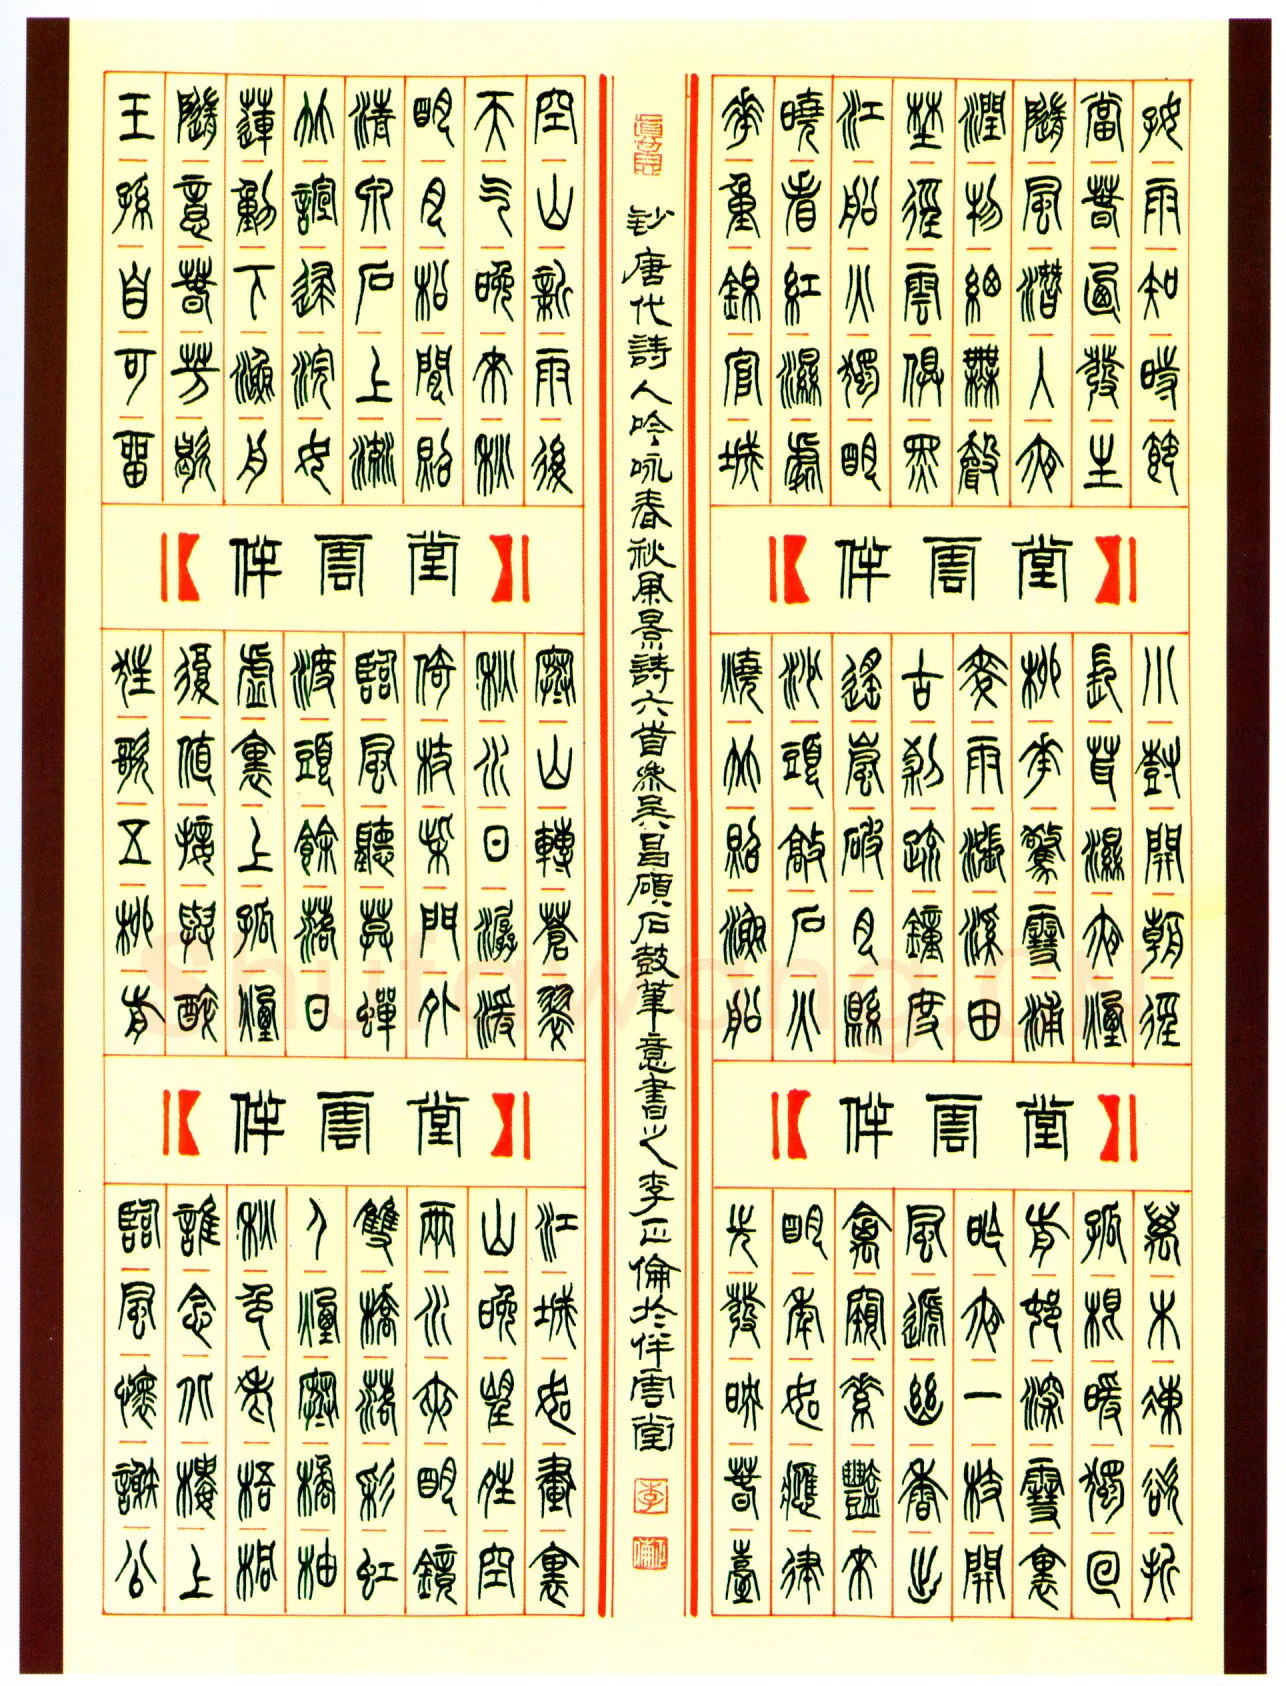 好雨知時節
當春迺發生
隨風潛入夜
潤物細無聲
野徑雲俱黑
江船火獨明
曉看紅濕處
花重錦官城
伴雲堂
小樹開朝徑
長茸濕夜煙
柳花驚雪浦
麥雨漲溪田
古刹疏鐘度
遙嵐破月懸
沙頭敲石火
燒竹照漁船
伴雲堂
萬木凍欲折
孤根暖獨回
前村深雪裏
昨夜一枝開
風遞幽香出
禽窺素豔來
明年如應律
先發映春臺
鈔唐代詩人吟咏春秋風景詩六首參吳昌碩石鼓筆意書之李正倫於伴雲堂
李
空山新雨後
天气晚來秋
明月松間照
清泉石上流
竹諠歸浣女
蓮動下漁舟
隨意春芳歇
王孫自可留
伴雲堂
寒山轉蒼翠
秋水日潺湲
倚杖柴門外
臨風聽暮蟬
渡頭餘落日
虛里上孤煙
復值接輿醉
狂歌五柳前
伴雲堂
江城如畫裏
山晚望晴空
兩水夾明鏡
雙橋落彩虹
人煙寒橘柚
秋色老梧桐
誰念北樓上
臨風懷謝公
Shufawang.cn